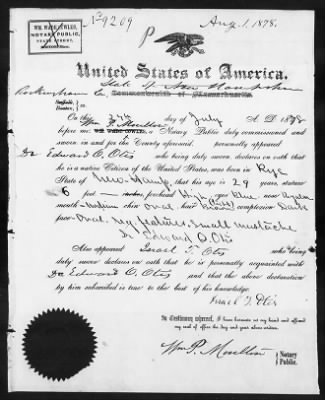 No 9209
Aug. 1, 1878.
WM. WADE JEWLES,
NOTARY PUBLIC,
STATE STREET,
BOSTON.
P
United States of America.
State of New Hampshire
Rockingham Co. Commonwealth of Massachusetts.
Suffolk, Boston,
On this day of July A. D. 1878
Wm P. Moulton
before me a Notary Public duly commissioned and
sworn in and for the County aforesaid, personally appeared
Dr Edward O. Otis who being duly sworn declares on oath that
he is a native Citizen of the United States, was born in Rye
State of New Hamp. that his age is 29 years, stature
6 feet forehead High eyes Blue nose
mouth Medium chin oval hair Brown complexion Dark
face Oval. reg features. Small mustache
Dr Edward O. Otis
Also appeared Israel T. Otis who being
duly sworn declares on oath that he is personally acquainted with
Dr Edward O. Otis and that the above declaration
by him subscribed is true to the best of his knowledge.
Israel T. Otis
In Testimony whereof, I have hereunto set my hand and affixed
my seal of office the day and year above written.
Wm P. Moulton Notary Public.